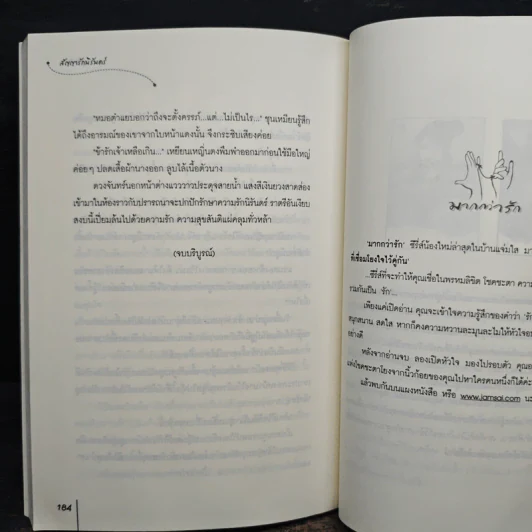 สัญญารักนิรันดร์
"หมอตำแยบอกว่าถึงจะตั้งครรภ์...แต่...ไม่เป็นไร..." ชุนเหมียนรู้สึก
ได้ถึงอารมณ์ของเขาจากใบหน้าแดงนั้น จึงกระซิบเสียงค่อย
"ข้ารักเจ้าเหลือเกิน..." เหยียนเหญินตงพึมพำออกมาก่อนใช้มือใหญ่
ค่อยๆ ปลดเสื้อผ้านางออก ลูบไล้เนื้อตัวนาง
ดวงจันทร์นอกหน้าต่างแวววาวประดุจสายน้ำ แสงสีเงินยวงสาดส่อง
เข้ามาในห้องราวกับปรารถนาจะปกปักรักษาความรักนิรันดร์ ราตรีอันเงียบ
สงบนี้เปี่ยมล้นไปด้วยความรัก ความสุขสันติแผ่คลุมทั่วหล้า
(จบบริบูรณ์)
184
มากกว่ารัก
'มากกว่ารัก' ซีรี่ส์น้องใหม่ล่าสุดในบ้านแจ่มใส
ที่เชื่อมโยงใจไว้คู่กัน'
...ซีรี่ส์ที่จะทำให้คุณเชื่อในพรหมลิขิต โชคชะตา
รวมกันเป็น 'รัก'...
เพียงแค่เปิดอ่าน คุณจะเข้าใจความรู้สึกของคำว่า
สนุกสนาน สดใส หากก็คงความหวานละมุนละไมให้หัวใจ
อย่างดี
หลังจากอ่านจบ ลองเปิดหัวใจ มองไปรอบตัว
โชคชะตาโยงจากนิ้วก้อยของคุณไปหาใครคนหนึ่งก็ได้ค่ะ
แล้วพบกันบนแผงหนังสือ หรือ www.jamsai.com นะ